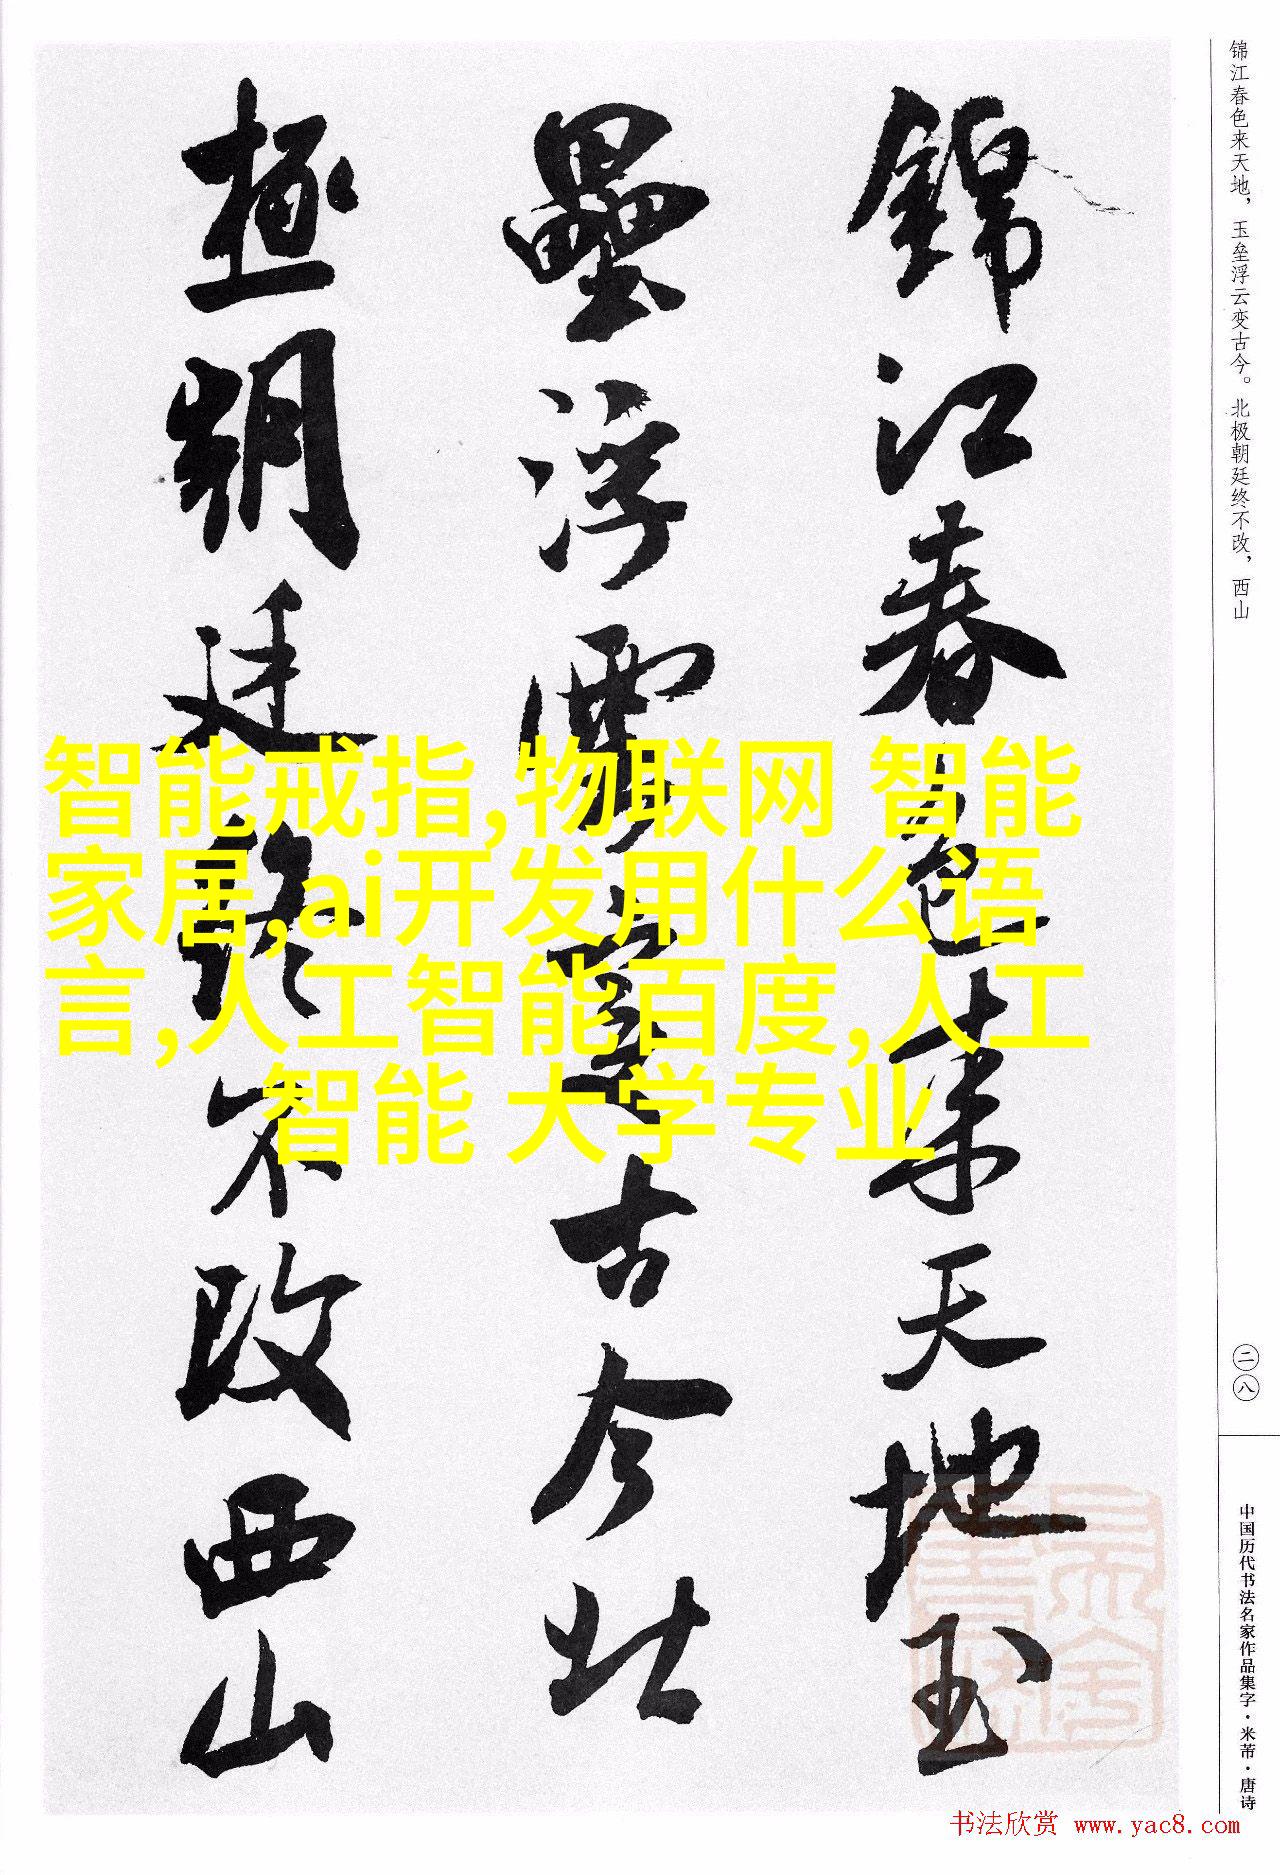 锦江春色来天地，玉垒浮云变古今。北极朝廷终不改，西山
錦江春色来天地玉
壘浮雲變古今北
極朝廷終不改西山
智能戒指,物联网 智能
家居,ai开发用什么语
言,人工智能百度,人工
智能 大学专业
二八
中国历代书法名家作品集字·米芾·唐诗
书法欣赏 www.yac8.com